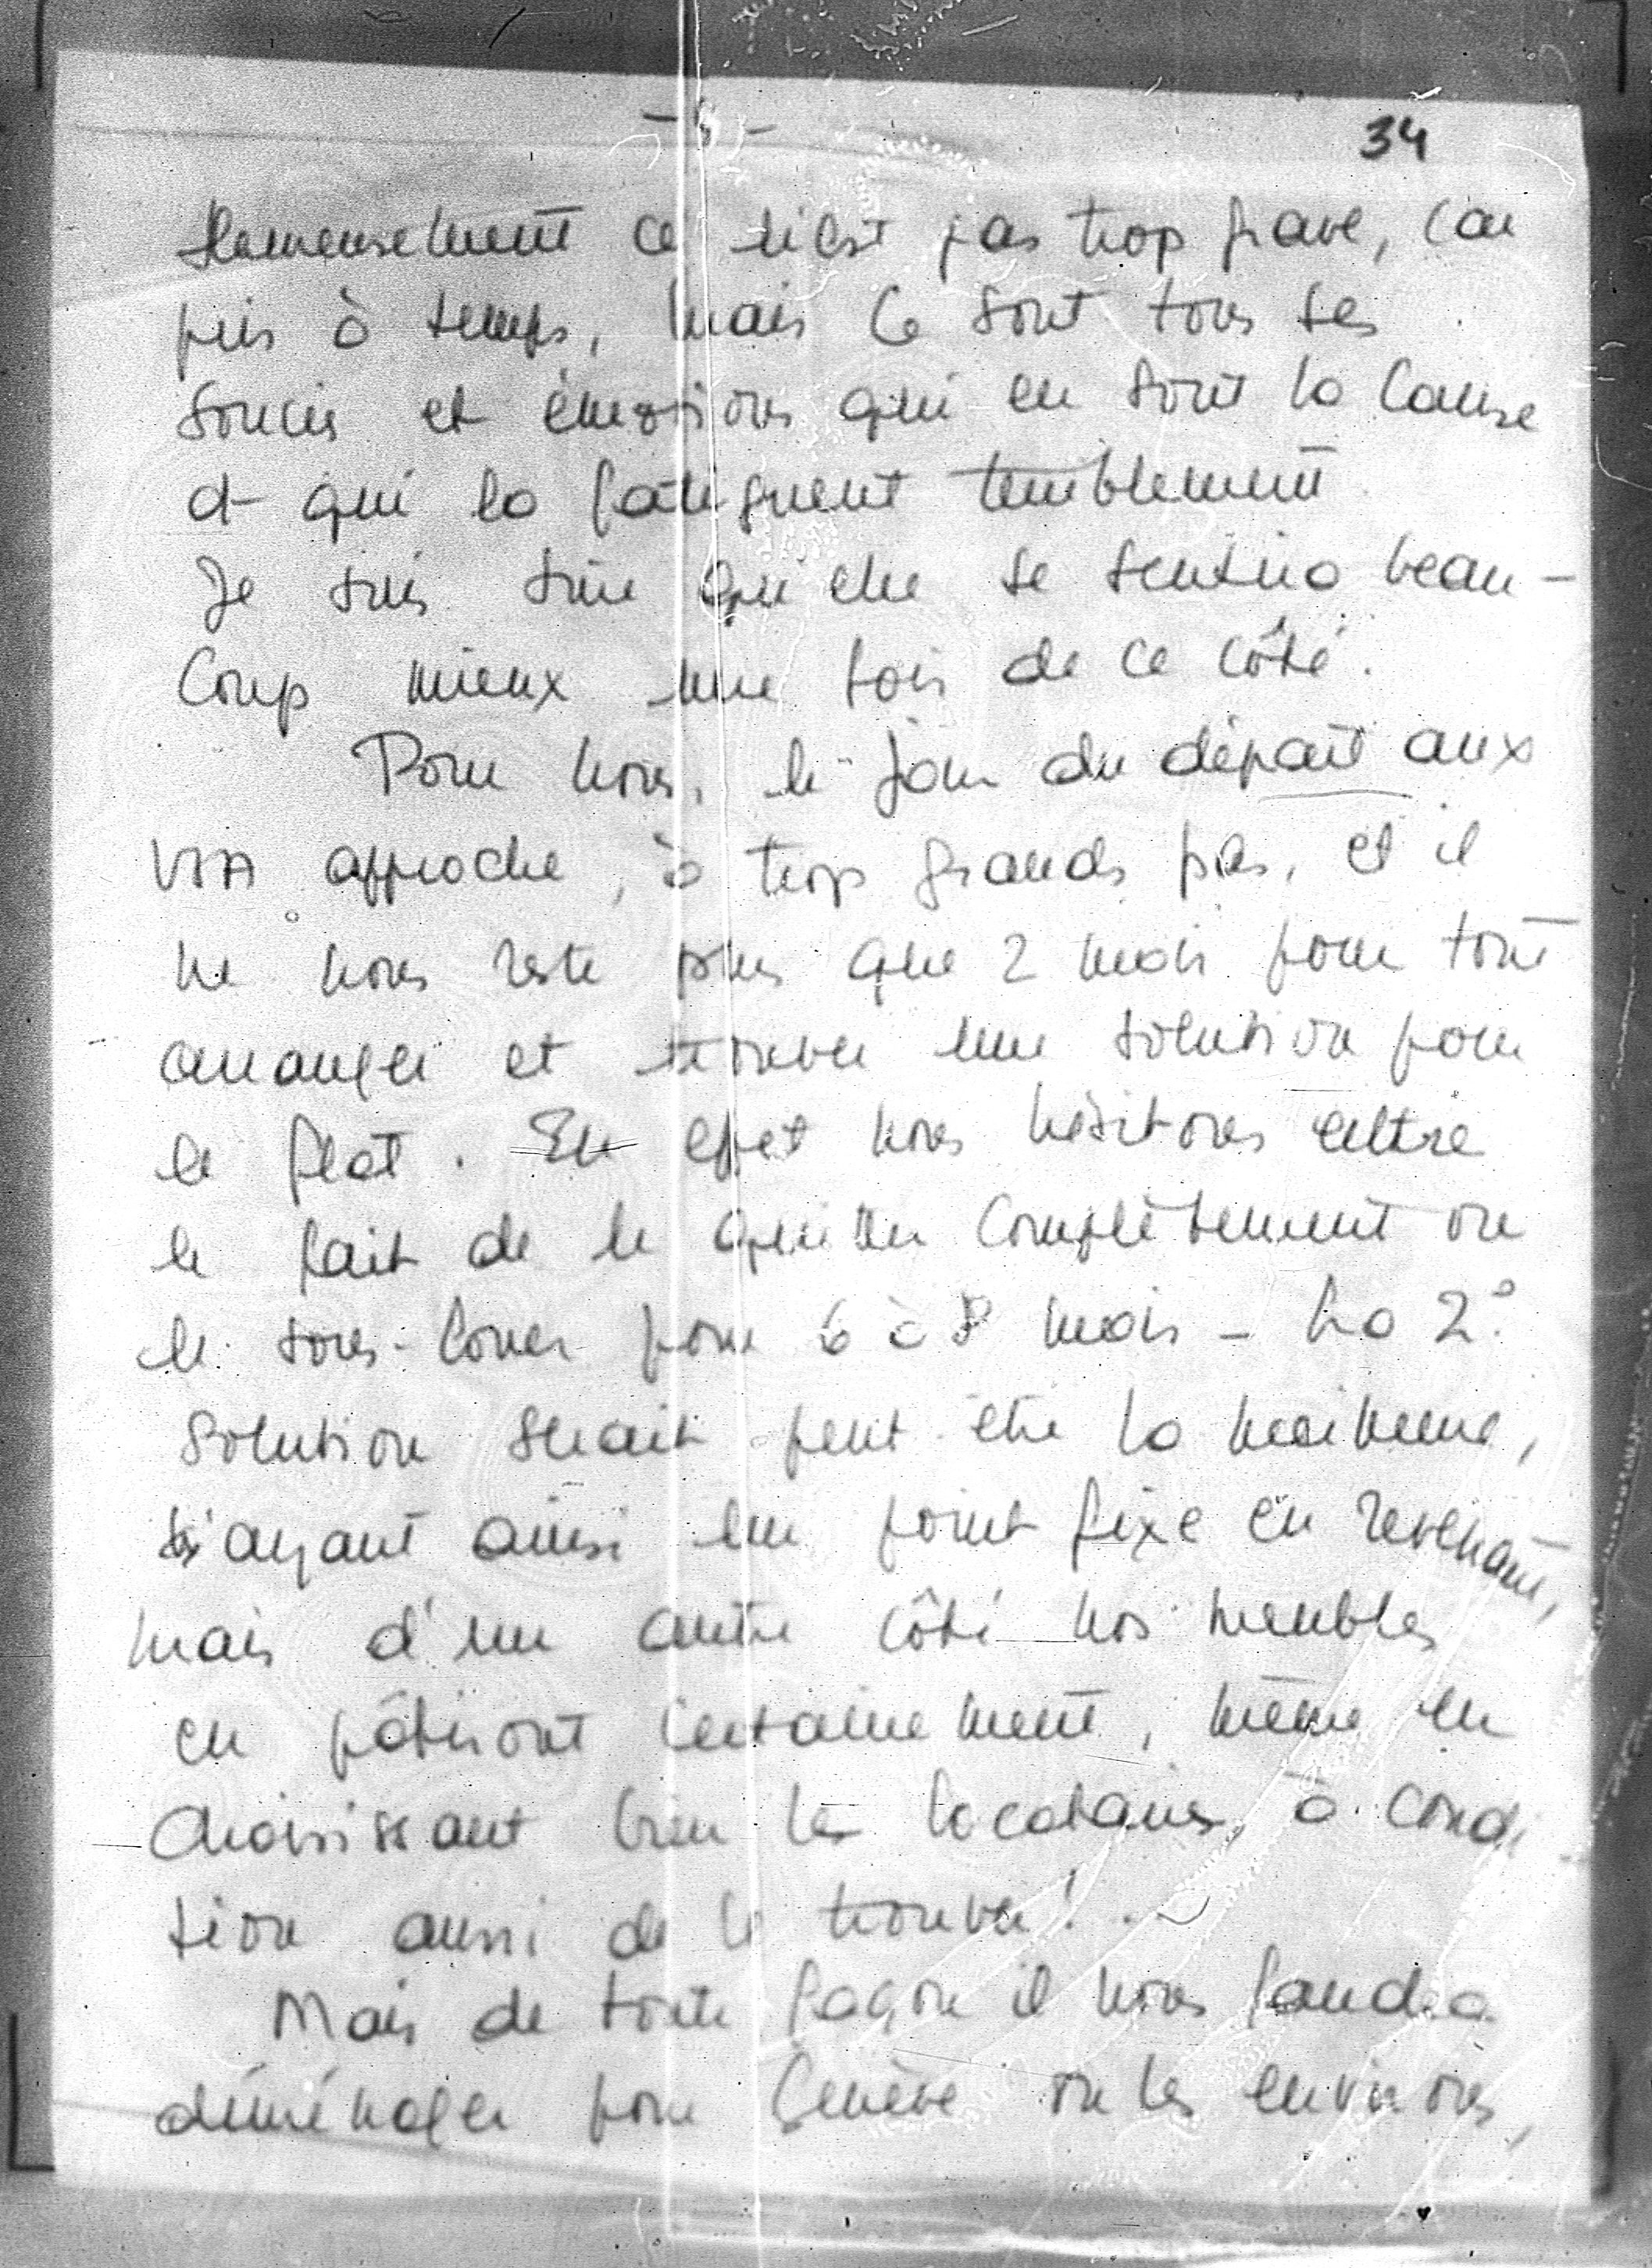 34
Heureusement ce n'est pas trop grave, car
pris à temps, mais ce sont tous ses
soucis et émotions qui en sont la cause
et qui la fatiguent terriblement
Je suis sûre qu'elle se sentira beau-
coup mieux une fois de ce côté.
Pour nous, le jour du départ aux
USA approche, à trop grands pas, et il
ne nous reste plus que 2 mois pour tout
arranger et trouver une solution pour
le flat. En effet nous hésitons entre
le fait de le quitter complètement ou
le sous-louer pour 6 à 8 mois - La 2°
solution serait peut être la meilleure,
ayant ainsi un point fixe en revenant,
mais d'un autre côté nos meubles
en pâtiront certainement, même en
choisissant bien les locataires, à condi
tion aussi de le trouver!..
Mais de toute façon il nous faudra
déménager pour Genève ou les environs,